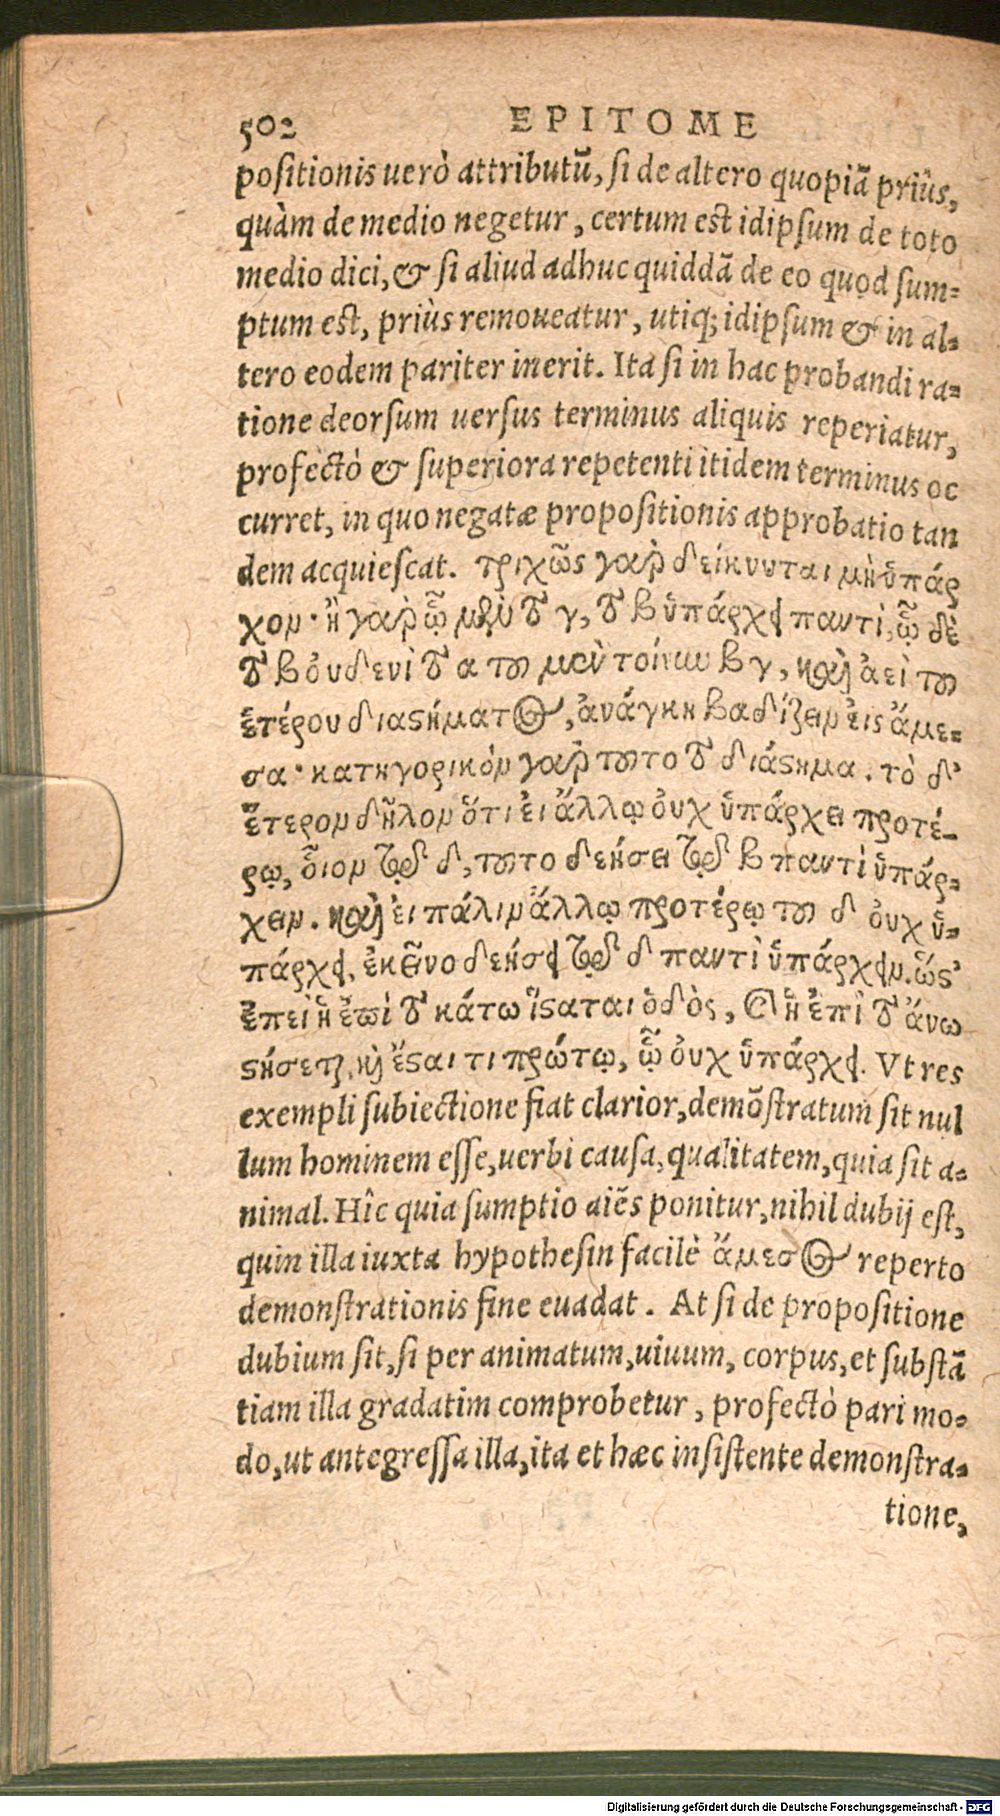 502 EPITOME
positionis uerò attributū, si de altero quopiā priùs,
quàm de medio negetur, certum est idipsum de toto
medio dici, & si aliud adhuc quiddā de eo quod sum-
ptum est, priùs remoueatur, utiq; idipsum & in al-
tero eodem pariter inerit. Ita si in hac probandi ra-
tione deorsum uersus terminus aliquis reperiatur,
profectò & superiora repetenti itidem terminus oc
curret, in quo negatæ propositionis approbatio tan
dem acquiescat. τριχῶς γαρ δείκνυται μὴ ὑπάρ
χον· ἢ γαρ ᾧ μὲν τὸ γ, τὸ β ὑπάρχει παντὶ, ᾧ δὲ
τὸ β οὐδενὶ τὸ α τοῦ μὲν τοίνυν β γ, καὶ ἀεὶ τοῦ
ἑτέρου διαστήματος, ἀνάγκη βαδίζειν εἰς ἄμε-
σα· κατηγορικὸν γαρ τοῦτο τὸ διάστημα. τὸ δ'
ἕτερον δῆλον ὅτι εἰ ἄλλῳ οὐχ ὑπάρχει προτέ-
ρῳ, οἷον τῷ δ, τοῦτο δεήσει τῷ β παντὶ ὑπάρ-
χειν. καὶ εἰ πάλιν ἄλλῳ προτέρῳ τοῦ δ οὐχ ὑ-
πάρχει, ἐκεῖνο δεήσει τῷ δ παντὶ ὑπάρχειν. ὥς'
ἐπεὶ ἡ ἐπὶ τὸ κάτω ἵσταται ὁδὸς, καὶ ἡ ἐπὶ τὸ ἄνω
στήσεται, καὶ ἔσται τι πρώτῳ, ᾧ οὐχ ὑπάρχει. Vt res
exempli subiectione fiat clarior, demōstratum sit nul
lum hominem esse, uerbi causa, qualitatem, quia sit a-
nimal. Hîc quia sumptio aiēs ponitur, nihil dubij est,
quin illa iuxta hypothesin facilè ἄμεσος reperto
demonstrationis fine euadat. At si de propositione
dubium sit, si per animatum, uiuum, corpus, et substā
tiam illa gradatim comprobetur, profectò pari mo-
do, ut antegressa illa, ita et hæc insistente demonstra-
tione,
Digitalisierung gefördert durch die Deutsche Forschungsgemeinschaft - DFG